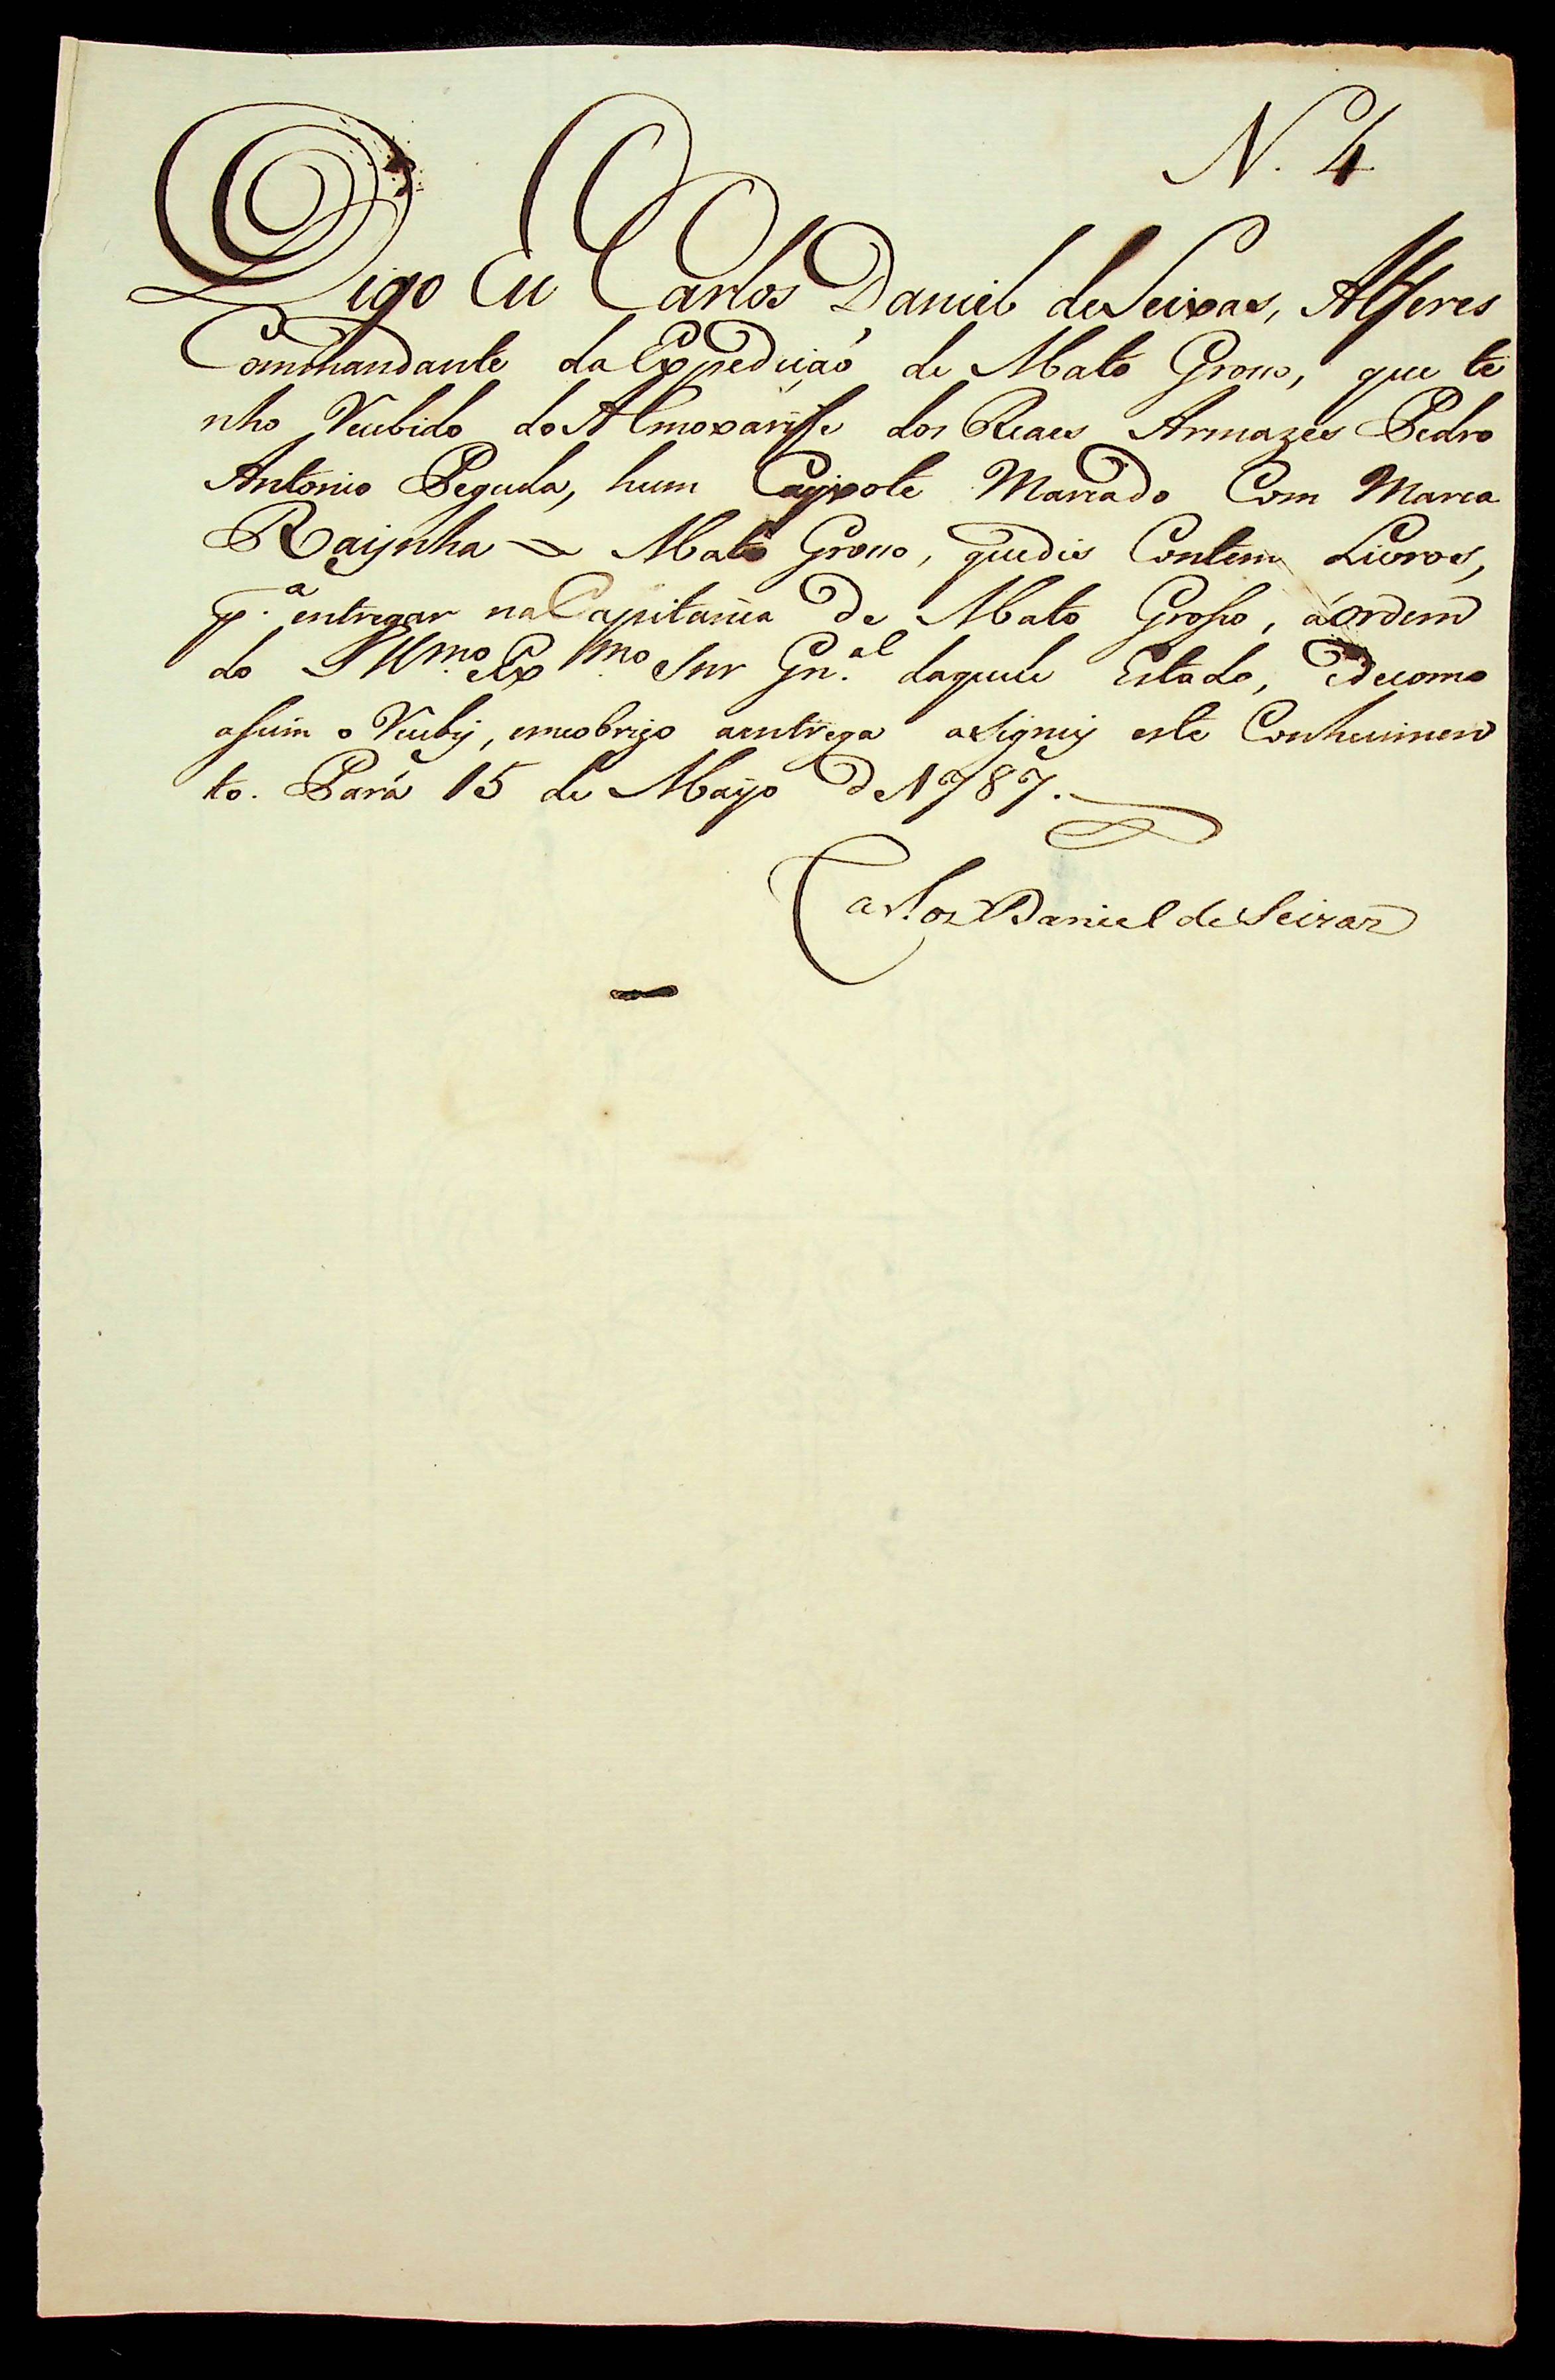 N. 4
Digo Eu Carlos Daniel de Seixas, Alferes
Commandante da Expediçaó de Mato Grosso, que te
nho Recebido do Almoxariffe dos Reaes Armazẽs Pedro
Antonio hum Cayxote Marcado Com Marca
Raÿnha = Mato Grosso, que dis Contem Livros,
p.ª entregar na Capitania de Mato Grosso, áordem
do Illmo. e Exmo. Snr Gn.al daquele Estado, e de como
assim o Recebÿ, e me obrigo a entrega asigneÿ este Conhecimen
to. Pará 15 de Mayo de 1787.
Carlos Daniel de Seixas